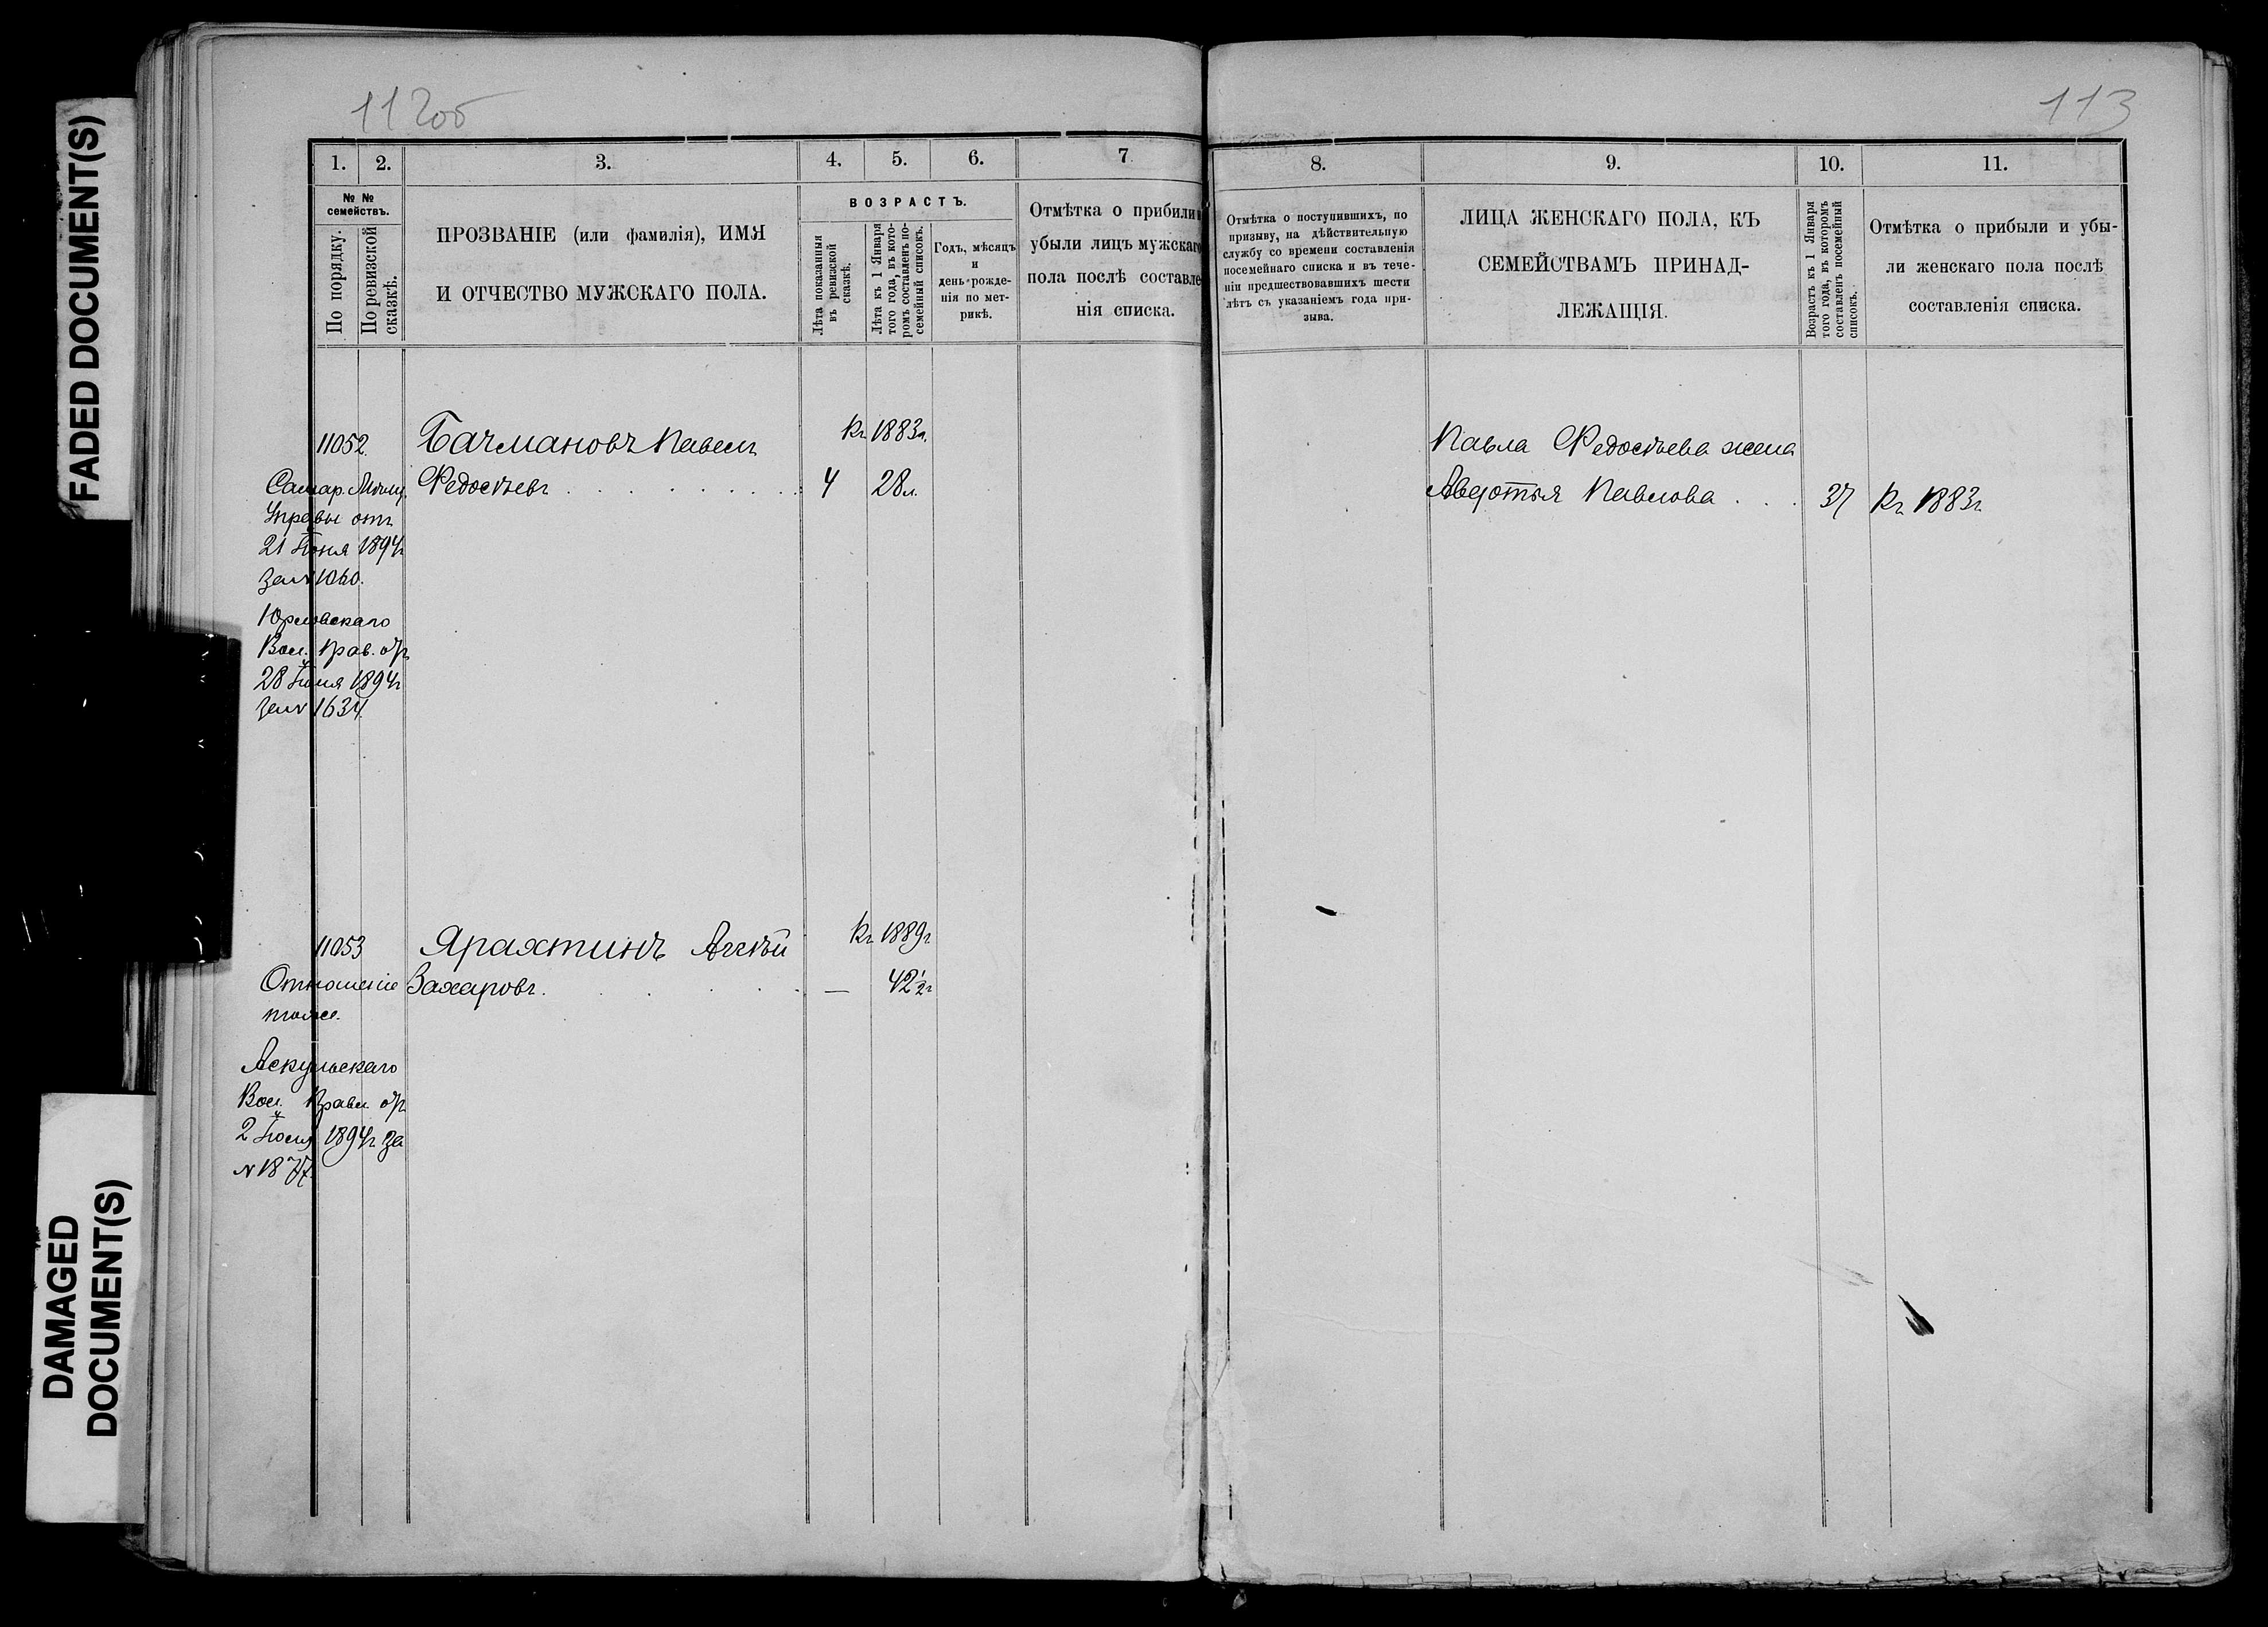 FADED DOCUMENT(S)
DAMAGED
DOCUMENT(S)
112об
1. 2. 3. 4. 5. 6. 7
№ №
семействъ.
По порядку.
По ревизской
сказкѣ.
ПРОЗВАНІЕ (или фамилія), ИМЯ
И ОТЧЕСТВО МУЖСКАГО ПОЛА.
ВОЗРАСТЪ.
Лѣта показанныя
въ ревизской
сказкѣ.
Лѣта къ 1 Января
того года, въ кото-
ромъ составленъ по-
семейный списокъ.
Годъ, мѣсяцъ
и
день рожде-
нія по мет-
рикѣ.
Отмѣтка о прибыли и
убыли лицъ мужскаго
пола послѣ составле-
нія списка.
11052. Бачмановъ Павелъ Къ 1883г.
Самар. Мѣщ. Федосѣевъ . . . . . . . . 4 28л.
Управы отъ
21 Іюня 1894г
за № 1060.
Юрловскаго
Вол. Прав. отъ
28 Іюня 1894г
за № 1634.
11053 Ярахтинъ Алексѣй Къ 1889г
Отношеніе Захаровъ . . . . . — 42½г
тоже.
Аскульскаго
Вол. Правл. отъ
2 Іюля 1894г за
№ 1877.
113
8. 9. 10. 11.
Отмѣтка о поступившихъ, по
призыву, на дѣйствительную
службу со времени составленія
посемейнаго списка и въ тече-
ніи предшествовавшихъ шести
лѣтъ съ указаніемъ года при-
зыва.
ЛИЦА ЖЕНСКАГО ПОЛА, КЪ
СЕМЕЙСТВАМЪ ПРИНАД-
ЛЕЖАЩІЯ.
Возрастъ къ 1 Января
того года, въ которомъ
составленъ посемейный
списокъ.
Отмѣтка о прибыли и убы-
ли женскаго пола послѣ
составленія списка.
Павла Федосѣева жена
Авдотья Павлова . . . 37 Къ 1883г.